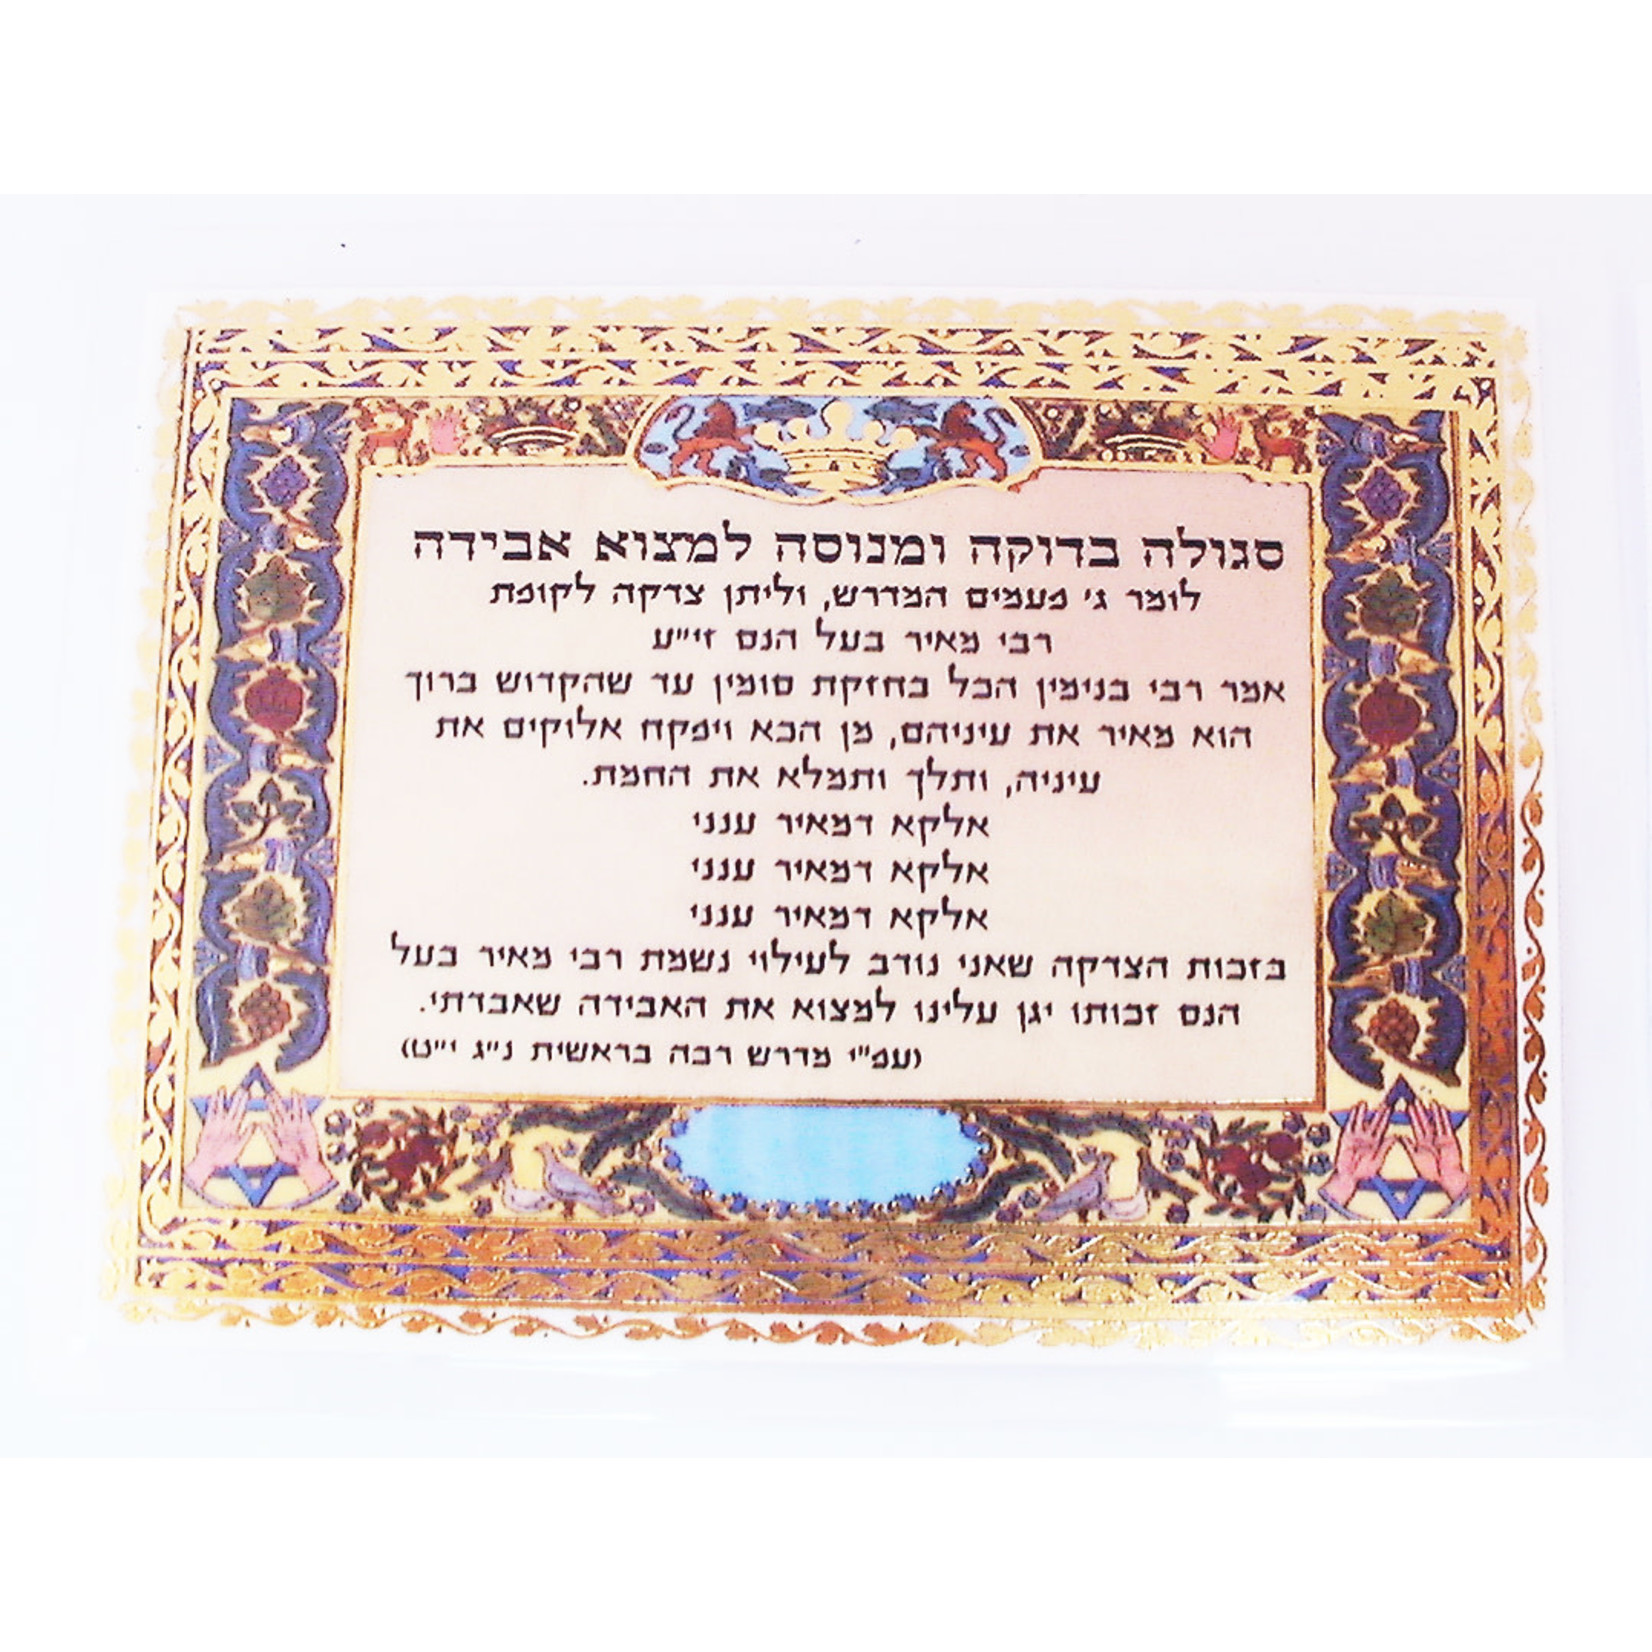 סגולה בדוקה ומנוסה למצוא אבידה
לומר ג' פעמים המדרש, וליתן צדקה לקופת
רבי מאיר בעל הנס זי"ע
אמר רבי בנימין הכל בחזקת סומין עד שהקדוש ברוך
הוא מאיר את עיניהם, מן הכא ויפקח אלוקים את
עיניה, ותלך ותמלא את החמת.
אלקא דמאיר ענני
אלקא דמאיר ענני
אלקא דמאיר ענני
בזכות הצדקה שאני נודב לעילוי נשמת רבי מאיר בעל
הנס זכותו יגן עלינו למצוא את האבידה שאבדתי.
(עפ"י מדרש רבה בראשית נ"ג י"ט)